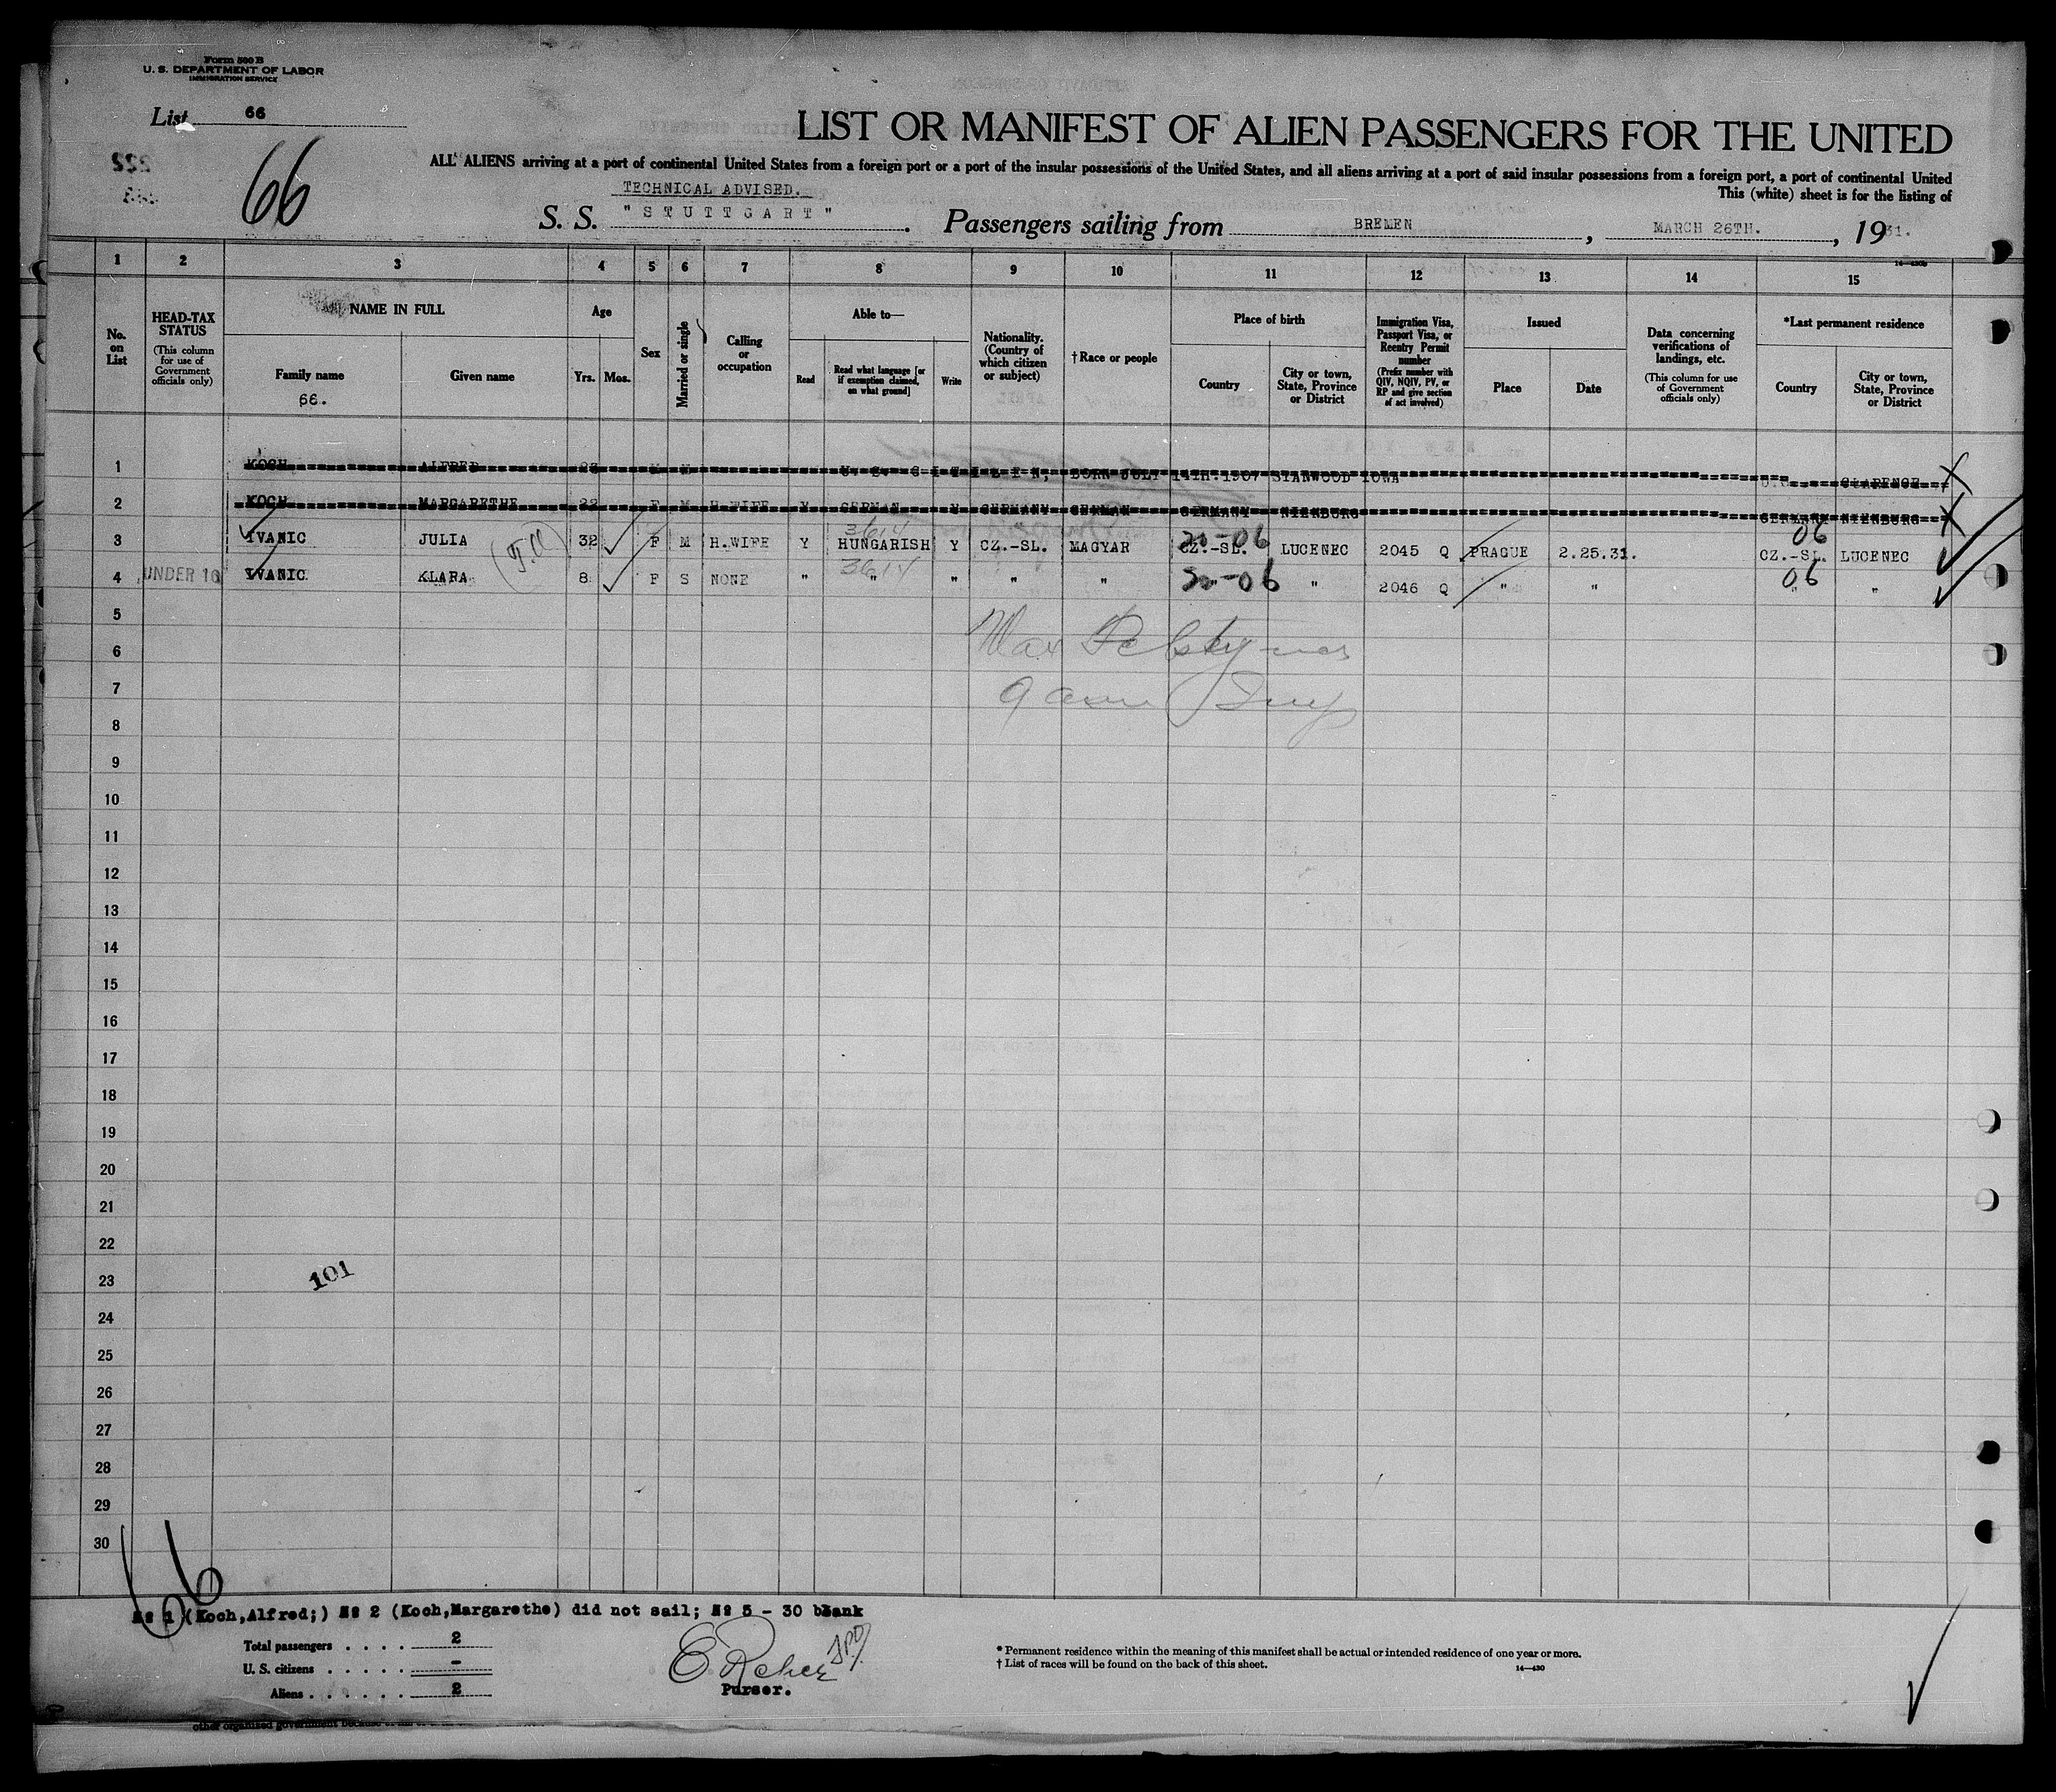 Form 500 B
U. S. DEPARTMENT OF LABOR
IMMIGRATION SERVICE
List 66
66
LIST OR MANIFEST OF ALIEN PASSENGERS FOR THE UNITED
ALL ALIENS arriving at a port of continental United States from a foreign port or a port of the insular possessions of the United States, and all aliens arriving at a port of said insular possessions from a foreign port, a port of continental United
This (white) sheet is for the listing of
TECHNICAL ADVISED.
S. S. "STUTTGART". Passengers sailing from BREMEN, MARCH 26TH., 1931.
1 2 3 4 5 6 7 8 9 10 11 12 13 14 15
No. on List
HEAD-TAX STATUS
(This column for use of Government officials only)
NAME IN FULL
Family name
66.
Given name
Age
Yrs. Mos.
Sex
Married or single
Calling or occupation
Able to—
Read
Read what language [or if exemption claimed, on what ground]
Write
Nationality. (Country of which citizen or subject)
† Race or people
Place of birth
Country
City or town, State, Province or District
Immigration Visa, Passport Visa, or Reentry Permit number
(Prefix number with QIV, NQIV, PV, or RP and give section of act involved)
Issued
Place
Date
Data concerning verifications of landings, etc.
(This column for use of Government officials only)
*Last permanent residence
Country
City or town, State, Province or District
1 KOCH ALFRED 23 M M U. S. CITIZEN, BORN JULY 14TH.1907 STANWOOD IOWA CLARENCE
2 KOCH MARGARETHE 22 F M H.WIFE Y GERMAN Y GERMANY GERMAN GERMANY NIENBURG GERMANY NIENBURG
3614 20-06 06
3 IVANIC JULIA 32 F M H.WIFE Y HUNGARISH Y CZ.-SL. MAGYAR CZ.-SL. LUCENEC 2045 Q PRAGUE 2.25.31. CZ.-SL. LUCENEC
3614 20-06 06
4 UNDER 16 IVANIC KLARA 8 F S NONE " " " " " " 2046 Q " " " "
5
6
7
8
9
10
11
12
13
14
15
16
17
18
19
20
21
22
23
101
24
25
26
27
28
29
30
66
№ 1 (Koch,Alfred;) № 2 (Koch,Margarethe) did not sail; № 5 - 30 blank
Total passengers . . . . 2
U. S. citizens . . . . . -
Aliens . . . . . . 2
Purser.
* Permanent residence within the meaning of this manifest shall be actual or intended residence of one year or more.
† List of races will be found on the back of this sheet.
14—430